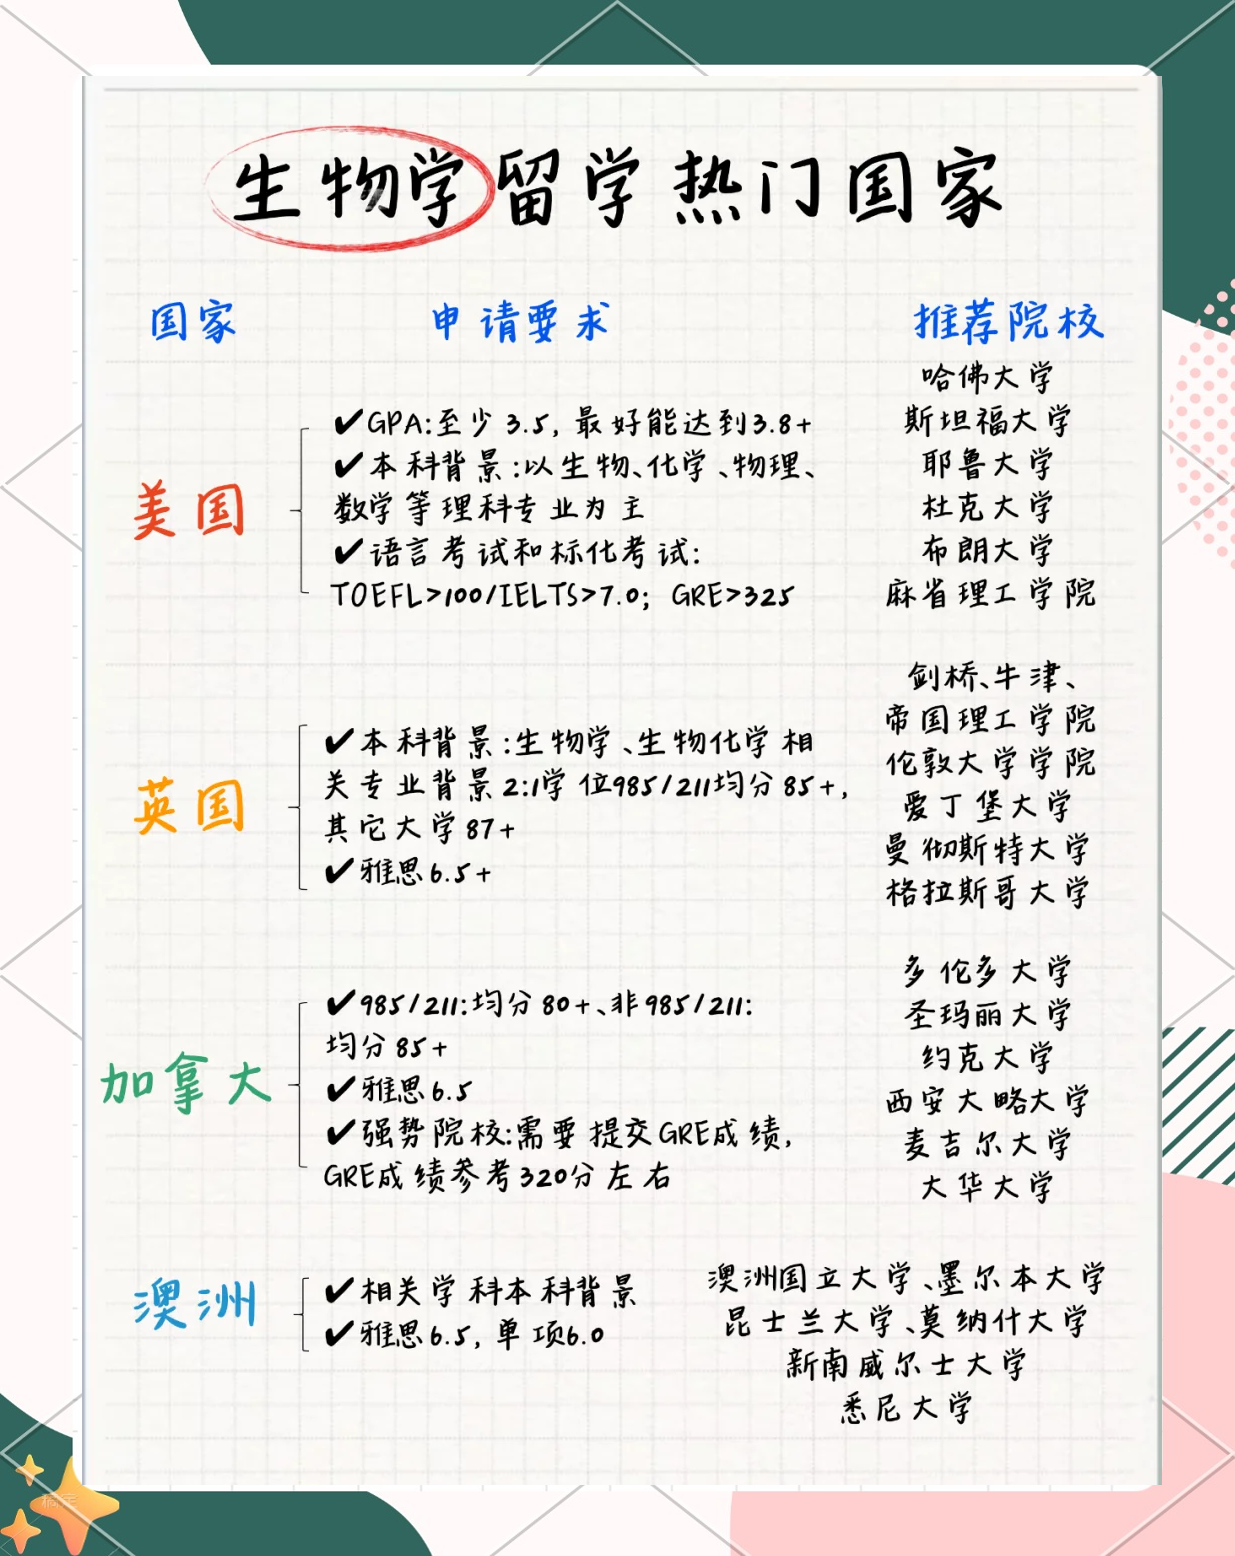 生物学留学热门国家
国家 申请要求 推荐院校
美国
✔GPA:至少3.5，最好能达到3.8+
✔本科背景:以生物、化学、物理、
数学等理科专业为主
✔语言考试和标化考试:
TOEFL>100/IELTS>7.0; GRE>325
哈佛大学
斯坦福大学
耶鲁大学
杜克大学
布朗大学
麻省理工学院
英国
✔本科背景:生物学、生物化学相
关专业背景2:1学位985/211均分85+,
其它大学87+
✔雅思6.5+
剑桥、牛津、
帝国理工学院
伦敦大学学院
爱丁堡大学
曼彻斯特大学
格拉斯哥大学
加拿大
✔985/211:均分80+、非985/211:
均分85+
✔雅思6.5
✔强势院校:需要提交GRE成绩,
GRE成绩参考320分左右
多伦多大学
圣玛丽大学
约克大学
西安大略大学
麦吉尔大学
大华大学
澳洲
✔相关学科本科背景
✔雅思6.5，单项6.0
澳洲国立大学、墨尔本大学
昆士兰大学、莫纳什大学
新南威尔士大学
悉尼大学